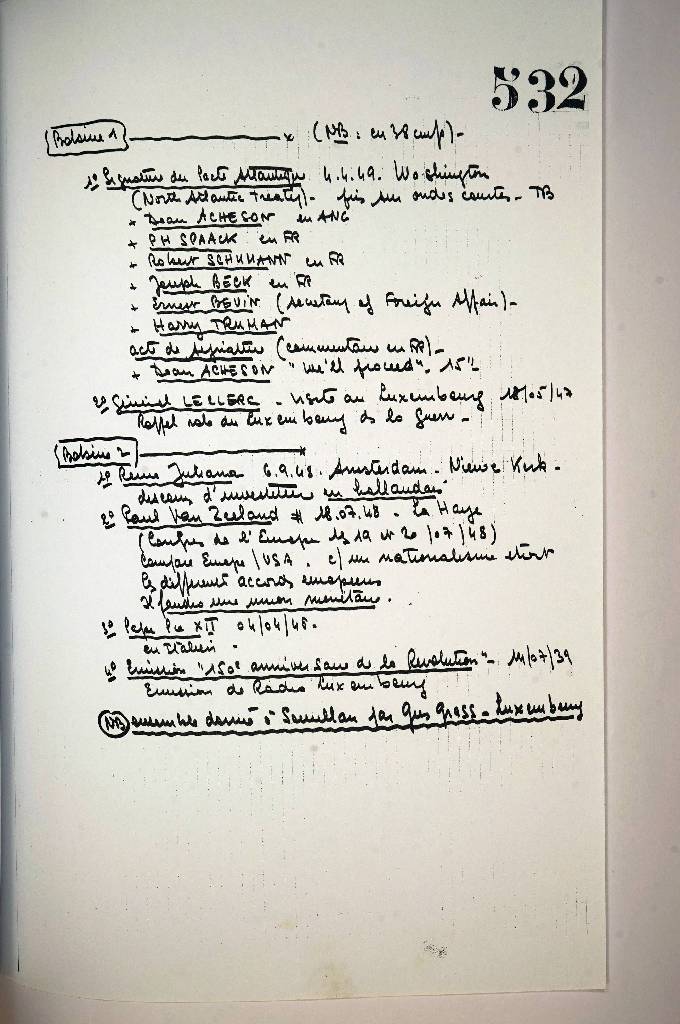 532
Bobine 1 x (NB : en 38 cm/s)-
1° Signature du Pacte Atlantique 4.4.49. Washington
(North Atlantic Treaty)- pris sur ondes courtes - TB
+ Dean ACHESON en ANG
+ PH SPAACK en FR
+ Robert SCHUMANN en FR
+ Joseph BECK en FR
+ Ernest BEVIN (secretary of Foreign Affair)-
+ Harry TRUMAN
acte de signature (commentaire en FR)-
+ Dean ACHESON "we'll proceed". 15"
2° Général LECLERC - visite au Luxembourg 18/05/47
Rappel role du Luxembourg ds la guerre -
Bobine 2 x
1° Reine Juliana 6.9.48. Amsterdam - Nieuwe Kerk -
discours d'investiture en hollandais
2° Paul Van Zeeland # 18.07.48 - La Haye
(Congrès de l'Europe 19 et 20/07/48)
Compare Europe/USA. c/ un nationalisme étroit
les différents accords européens
Il faudra une union monétaire.
3° Pape Pie XII 04/04/48.
en Italien.
4° Emission "150e anniversaire de la Révolution"- 14/07/39
Emission de Radio Luxembourg
NB ensemble donné à Sevillan par Gus Grass - Luxembourg